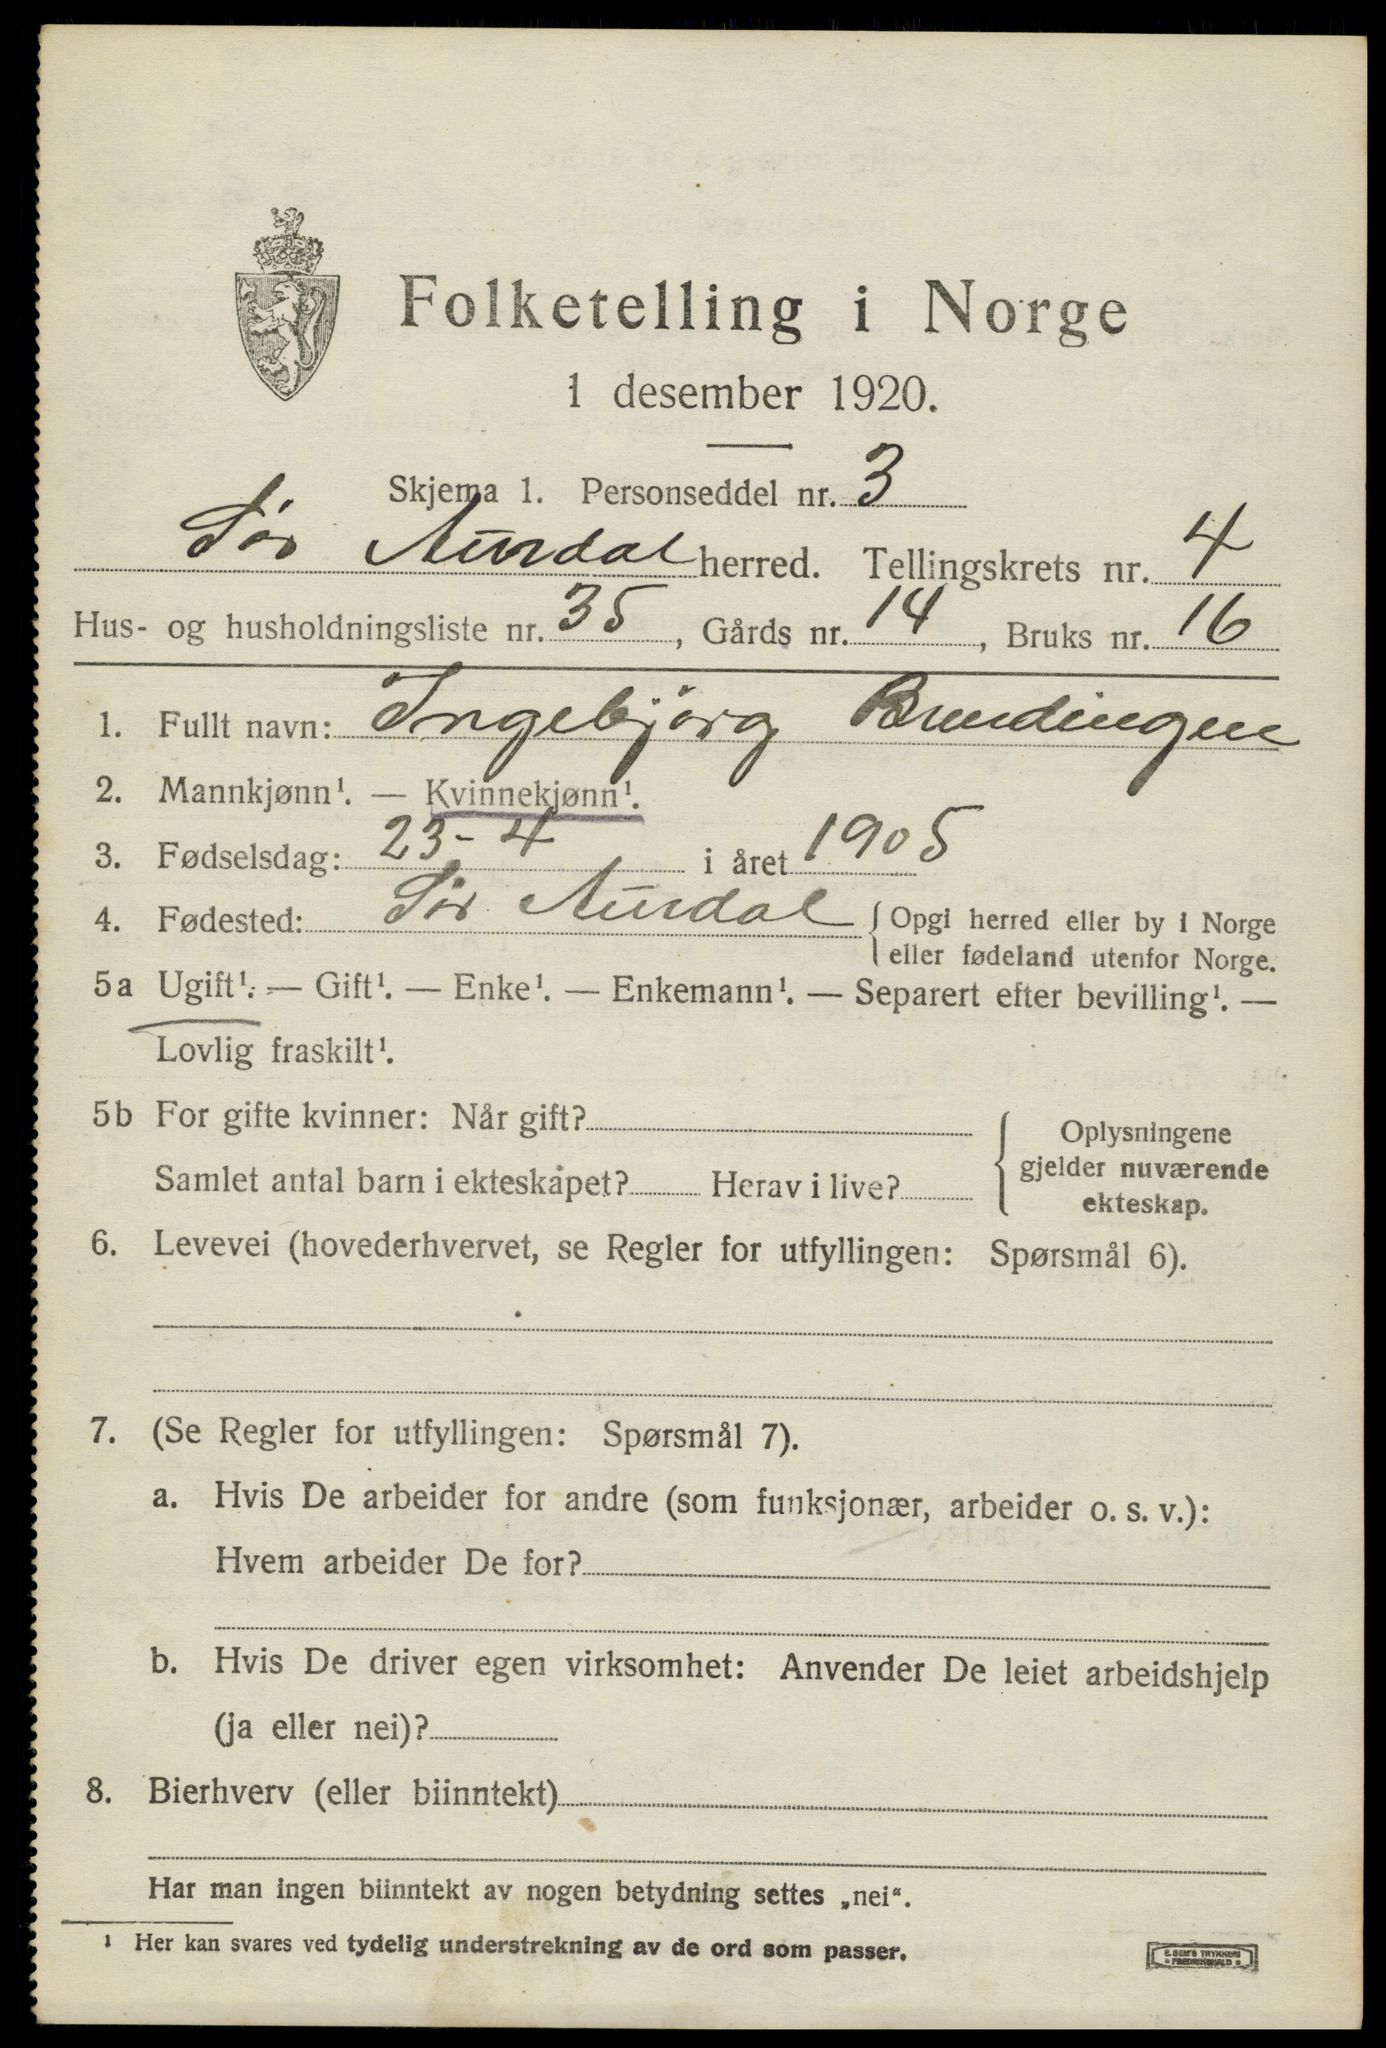 Folketelling i Norge
1 desember 1920.
Skjema 1. Personseddel nr. 3
Sør Aurdal herred. Tellingskrets nr. 4
Hus- og husholdningsliste nr. 35, Gårds nr. 14, Bruks nr. 16
1. Fullt navn: Ingebjørg
2. Mannkjønn¹. — Kvinnekjønn¹.
3. Fødselsdag: 23-4 i året 1905
4. Fødested: Sør Aurdal { Opgi herred eller by i Norge
eller fødeland utenfor Norge.
5a Ugift¹. — Gift¹. — Enke¹. — Enkemann¹. — Separert efter bevilling¹. —
Lovlig fraskilt¹.
5b For gifte kvinner: Når gift?
Samlet antal barn i ekteskapet? Herav i live?
{ Oplysningene
gjelder nuværende
ekteskap.
6. Levevei (hovederhvervet, se Regler for utfyllingen: Spørsmål 6).
7. (Se Regler for utfyllingen: Spørsmål 7).
a. Hvis De arbeider for andre (som funksjonær, arbeider o. s. v.):
Hvem arbeider De for?
b. Hvis De driver egen virksomhet: Anvender De leiet arbeidshjelp
(ja eller nei)?
8. Bierhverv (eller biinntekt)
Har man ingen biinntekt av nogen betydning settes „nei“.
¹ Her kan svares ved tydelig understrekning av de ord som passer.